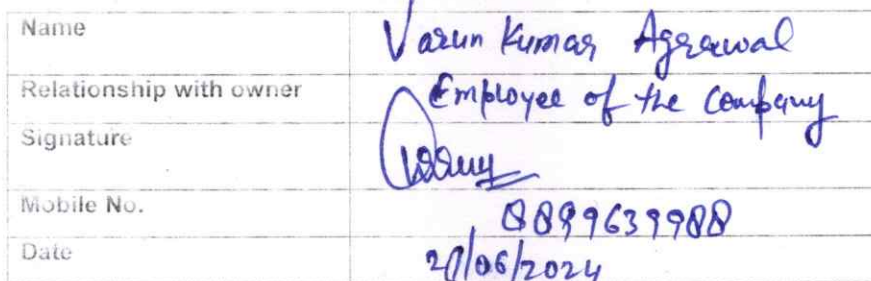 Name Varun Kumar Agrawal
Relationship with owner Employee of the Company
Signature
Mobile No. 8899639988
Date 20/06/2024